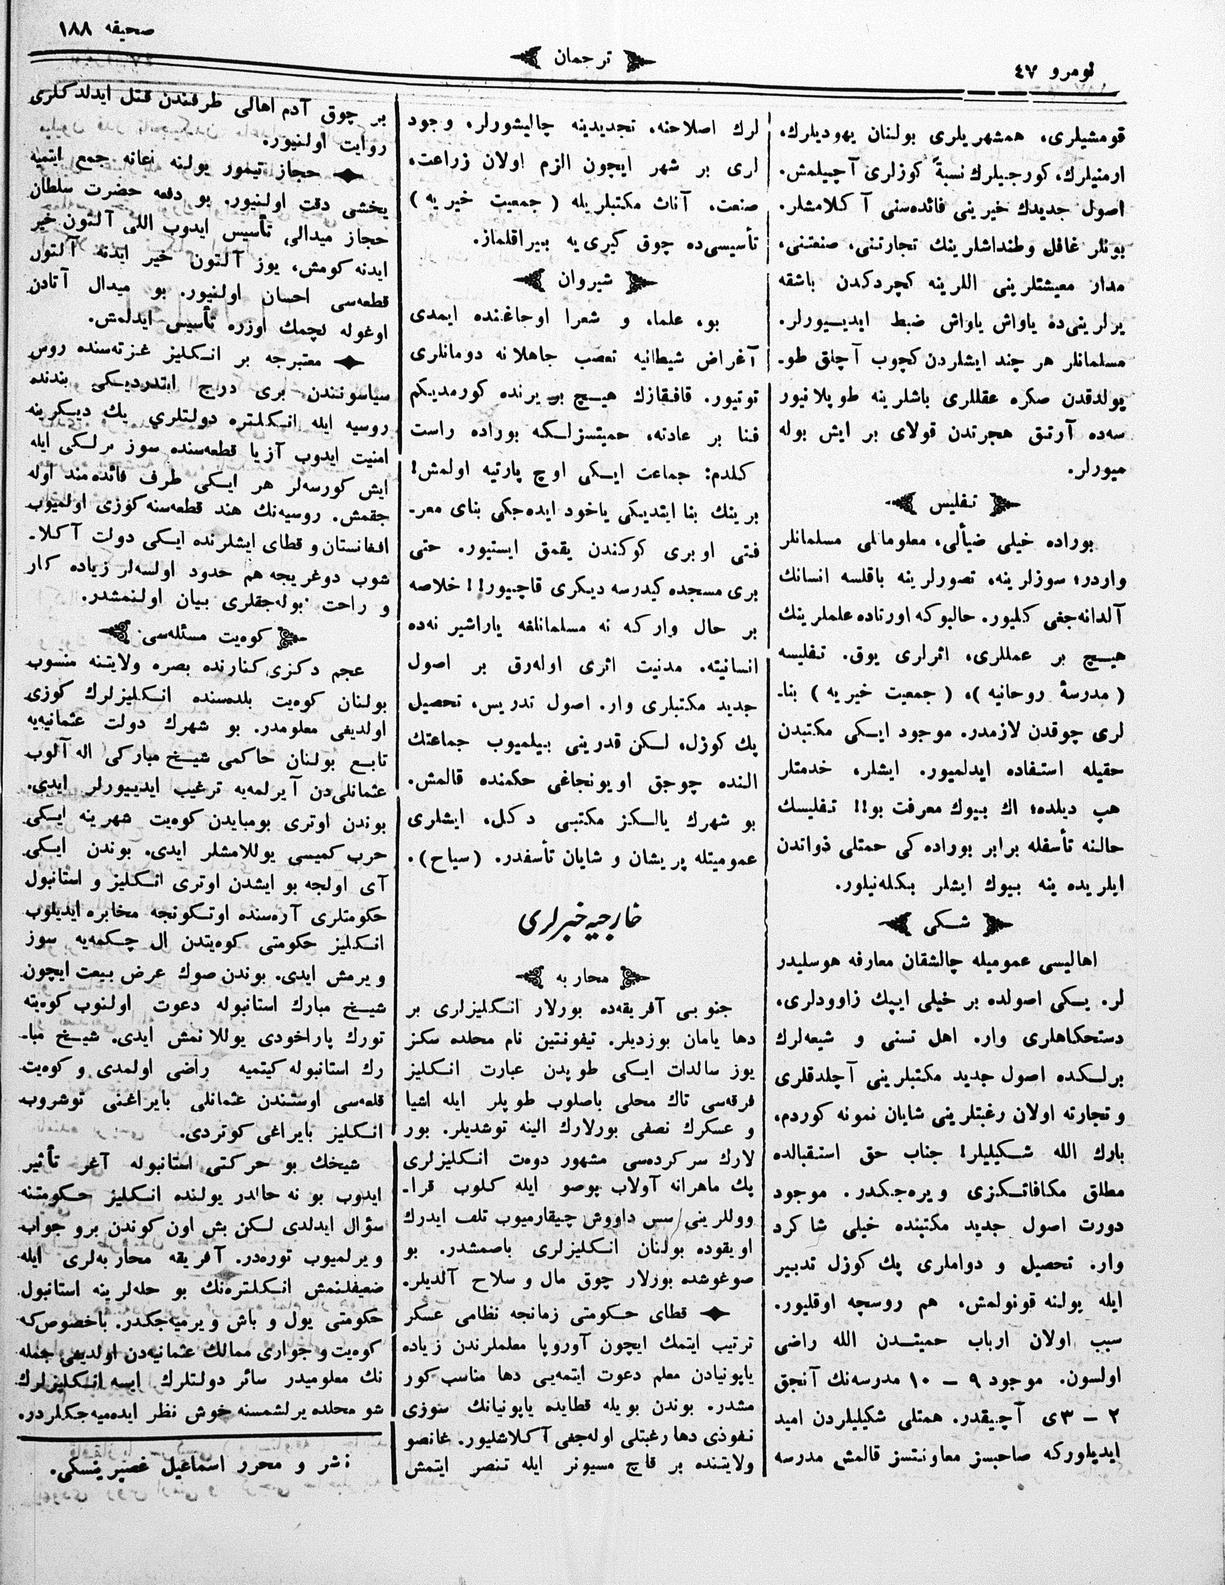 نومرو ٤٧
ترجمان
صحیفه ١٨٨
قومشیلری، همشهریلری بولنان یهودیلرك،
ارمنیلرك، كورجیلرك نسبةً كوزلری آچیلمش.
اصول جدیدك خیرینی فائده‌سنی آكلامشلر.
بونلر غافل وطنداشلرینك تجارتنی، صنعتنی،
مدار معیشتلرینی اللرینه كچردكدن باشقه
یرلرینی‌ده یاواش یاواش ضبط ایدیـیورلر.
مسلمانلر هر چند ایشلردن كچوب آچلق طو-
یولدقدن صكره عقللری باشلرینه طوپلانیور
سه‌ده آرتق هجرتدن قولای بر ایش بوله
میورلر.
تـفلیس
بوراده خیلی ضیألی، معلوماتلی مسلمانلر
واردر؛ سوزلرینه، تصورلرینه باقلسه انسانك
آلدانه‌جغی كلیور. حالبوكه اورتاده علملرینك
هیـچ بر عمللری، اثرلری یوق. تـفلیسه
( مدرسهٔ روحانیه )، ( جمعیت خیریه ) بنا-
لری چوقدن لازمدر. موجود ایـكی مكتبدن
حقیله استـفاده ایدلمیور. ایشلر، خدمتلر
هپ دیلده؛ اك بیوك معرفت بو!! تـفلیسك
حالنه تأسفله برابر بوراده كی حمتلی ذواتدن
ایلریده ینه بیوك ایشلر بكله‌نیلور.
شـكی
اهالیسی عمومیله چالشقان معارفه هوسلیدر
لر. یـكی اصولده بر خیلی ایپك زاوودلری،
دستحكاهلری وار. اهل تسنی و شیعه‌لرك
برلـكده اصول جدید مكتبلرینی آچلدقلری
و تجارته اولان رغبتلرینی شایان نمونه كوردم،
بارك الله شـكیلیلر! جناب حق استـقبالده
مطلق مكافاتـكزی ویره‌جـكدر. موجود
دورت اصول جدید مكتبنده خیلی شاكرد
وار. تحصیل و دواملری پك كوزل تدبیر
ایله یولنه قونولمش، هم روسچه اوقلیور.
سبب اولان ارباب حمیتـدن الله راضی
اولسون. موجود ٩ — ١٠ مدرسه‌نك آنجق
٢ — ٣ی آچیقدر. همتلی شكیلیلردن امید
ایدیلوركه صاحبسز معاونتسز قالمش مدرسه
لرك اصلاحنه، تجدیدینه چالیشورلر، وجود
لری بر شهر ایچون الزم اولان زراعت،
صنعت، آناث مكتبلریله ( جمعیت خیریه )
تأسیسی‌ده چوق كیری‌یه بیراقلماز.
شیروان
بو، علما، و شعرا اوجاغنده ایمدی
آغراض شیطانیه تعصب جاهلانه دومانلری
توتیور. قافقازك هیـچ بر یرنده كورمدیكم
فنا بر عادته، حمیتسزلـكه بوراده راست
كلدم: جماعت ایـكی اوچ پارتیه اولمش!
برینك بنا ایتدیـكی یاخود ایده‌جكی بنای معر-
فتی اوبری كوكندن یقمق ایستیور. حتی
بری مسجده كیدرسه دیـكری قاچیور!! خلاصه
بر حال واركه نه مسلمانلغه یاراشیر نه‌ده
انسانیته. مدنیت اثری اوله‌رق بر اصول
جدید مكتبلری وار. اصول تدریس، تحصیل
پك كوزل، لـكن قدرینی بیلمیوب جماعتك
النده چوجق اویونجاغی حكمنده قالمش.
بو شهرك یالـكز مكتبی دكل، ایشلری
عمومیتله پریشان و شایان تأسفدر. (سیاح).
خارجیه خبرلری
محاربه
جنوبی آفریقه‌ده بورلار انـكلیزلری بر
دها یامان بوزدیلر. تیفونتین نام محلده سكز
یوز سالدات ایـكی طوپدن عبارت انـكلیز
فرقه‌سی تاك محلی باصلوب طوپلر ایله اشیا
و عسكرك نصفی بورلارك الینه توشدیلر. بور
لارك سركرده‌سی مشهور دوه‌ت انـكلیزلری
پك ماهرانه آولاب پوصو ایله كلوب قرا-
ووللرینی سس داووش چیقارمیوب تلف ایدرك
اویقوده بولنان انـكلیزلری باصمشدر. بو
صوغوشده بورلار چوق مال و سلاح آلدیلر.
قطای حـكومتی زمانجه نظامی عسكر
ترتیب ایتمك ایچون آوروپا معلملرندن زیاده
یاپونیادن معلم دعوت ایتمه‌یی دها مناسب كور
مشدر. بوندن بویله قطایده یاپونیانك سوزی
نـفوذی دها رغبتلی اوله‌جغی آكلاشلیور. غانصو
ولایتنده بر قاچ مسیونر ایله تنصر ایتمش
بر چوق آدم اهالی طرفندن قتل ایدلدكلری
روایت اولنیور.
حجاز تیمور یولنه اعانه جمع ایتمیه
یخشی دقت اولنیور. بو دفعه حضرت سلطان
حجاز میدالی تأسیس ایدوب اللی آلتون خیر
ایدنه كومش، یوز آلتون خیر ایدنه آلتون
قطعه‌سی احسان اولنیور. بو میدال آتادن
اوغوله كچمك اوزره تأسیس ایدلمش.
معتبرجه بر انـكلیز غزته‌سنده روس
سیاسونندن بری درج ایتدردیـكی بندنده
روسیه ایله انـكلتره دولتلری بك دیـكرینه
امنیت ایدوب آزیا قطعه‌سنده سوز برلـكی ایله
ایش كورسه‌لر هر ایـكی طرف فائده‌مند اوله
جقمش. روسیه‌نك هند قطعه‌سنه كوزی اولمیوب
افغانستان و قطای ایشلرنده ایـكی دولت آكلا-
شوب دوغریجه هم حدود اولسه‌لر زیاده كار
و راحت بوله‌جقلری بیان اولنمشدر.
كوه‌یت مسئله‌سی
عجم دكزی كنارنده بصره ولایتنه منسوب
بولنان كوه‌یت بلده‌سنده انـكلیزلرك كوزی
اولدیغی معلومدر. بو شهرك دولت عثمانیه‌یه
تابع بولنان حاكمی شیـخ مباركی اله آلوب
عثمانلی‌دن آیرلمه‌یه ترغیب ایدیـیورلر ایدی.
بوندن اوتری بومبایدن كوه‌یت شهرینه ایـكی
حرب كمیسی یوللامشلر ایدی. بوندن ایـكی
آی اولجه بو ایشدن اوتری انـكلیز و استانبول
حكومتلری آره‌سنده اوتـكونجه مخابره ایدیلوب
انـكلیز حكومتی كوه‌یتدن ال چـكمه‌یه سوز
ویرمش ایدی. بوندن صوك عرض بیعت ایچون
شیـخ مبارك استانبوله دعوت اولنوب كوه‌یته
تورك پاراخودی یوللانمش ایدی. شیـخ مبا-
رك استانبوله كیتمیه راضی اولمدی و كوه‌یت
قلعه‌سی اوستندن عثمانلی بایراغنی توشروب
انـكلیز بایراغی كوتردی.
شیخك بو حركتی استانبوله آغر تأثیر
ایدوب بو نه حالدر یولنده انـكلیز حـكومتنه
سؤال ایدلدی لكن بش اون كوندن برو جواب
ویرلمیوب توره‌در. آفریقه محاربه‌لری ایله
ضعیفلنمش انـكلتره‌نك بو حله‌لرینه استانبول
حكومتی یول و باش ویرمیه‌جكدر. باخصوص‌كه
كوه‌یت و جواری ممالك عثمانیه‌دن اولدیغی جمله
نك معلومیدر سائر دولتلرك ایسه انـكلیزلرك
شو محلده یرلشمسنه خوش نظر ایده‌میه‌جكلردر.
ناشر و محرر اسماعیل غصپرینسكی.